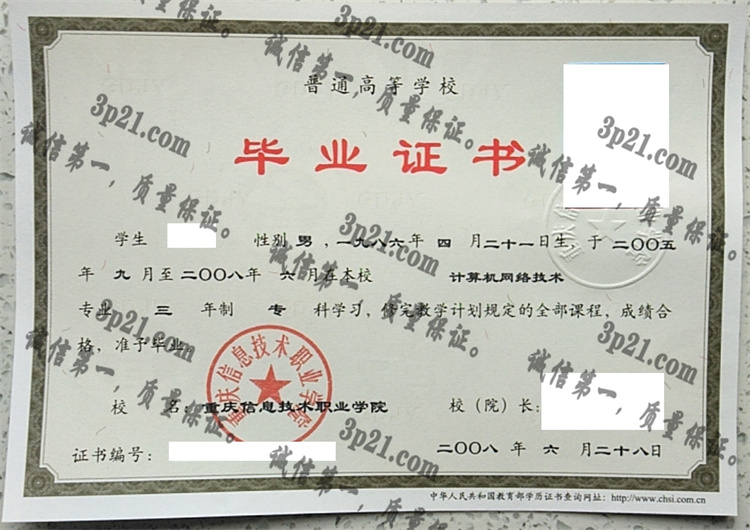 普通高等学校
毕业证书
学生 性别 男，一九八六年 四 月二十一日生，于 二〇〇五
年 九 月至 二〇〇八年 六 月在本校 计算机网络技术
专业 三 年制 专 科学习，修完教学计划规定的全部课程，成绩合
格，准予毕业。
校 名：重庆信息技术职业学院 校（院）长：
证书编号： 二〇〇八 年 六 月二十八日
中华人民共和国教育部学历证书查询网址：http://www.chsi.com.cn
重庆信息技术职业学院
3p21.com
诚信第一，质量保证。
3p21.com
诚信第一，质量保证。
3p21.com
诚信第一，质量保证。
3p21.com
诚信第一，质量保证。
3p21.com
诚信第一，质量保证。
3p21.com
诚信第一，质量保证。
3p21.com
诚信第一，质量保证。
3p21.com
诚信第一，质量保证。